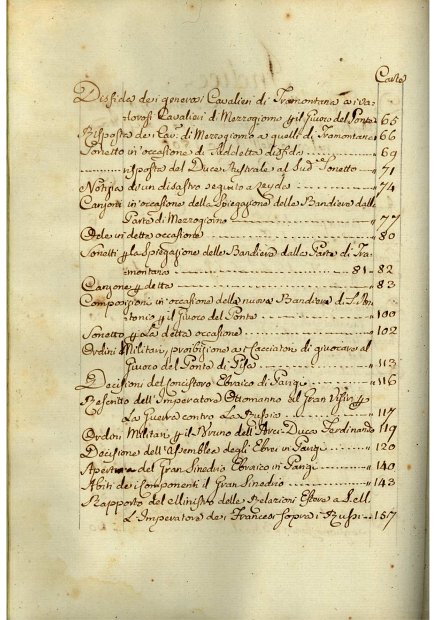 Carte
Disfida dei generosi Cavalieri di Tramontana ai va-
lorosi Cavalieri di Mezzogiorno p il Giuoco del Ponte 65
Risposta dei Cav.ri di Mezzogiorno a quelli di Tramontana 66
Sonetto in occasione di Saddetta disfida 69
risposta del Duce Australe al Sud.o Sonetto 71
Notizia di un disastro seguito a 74
Canzoni in occasione della Spiegazione delle Bandiere dalla
Parte di Mezzogiorno 77
Ode in detta occasione 80
Sonetti p la Spiegazione delle Bandiere dalla Parte di Tra-
montana 81 - 82
Canzone p detta 83
Composizioni in occasione della nuova Bandiera di S. An-
tonio p il Giuoco del Ponte 100
Sonetto p La detta occasione 102
Ordini Militari, proibizione a Cacciatori di giuocare al
Giuoco del Ponte di Pisa 113
Decisioni del Concistoro Ebraico di Parigi 116
Rescritto dell'Imperatore Ottomanno al Gran Visir p
La Guerra contro La Russia 117
Ordini Militari p il Bruno dell'Arci-Duca Ferdinando 119
Decisione dell'Assemblea degli Ebrei in Parigi 120
Apertura del Gran Sinedrio Ebraico in Parigi 140
Abiti dei componenti il Gran Sinedrio 143
Rapporto del Ministro delle Relazioni Estere a S. M.
L'Imperatore dei Francesi sopra i Russi 157